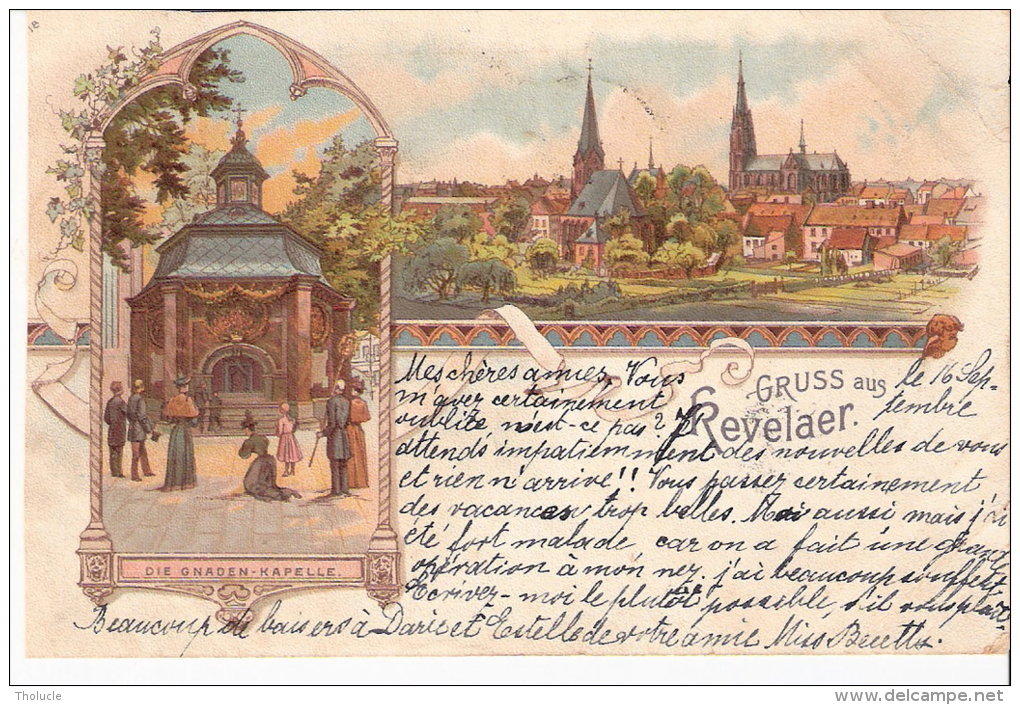 18
GRUSS aus
Kevelaer.
le 16 Sep-
tembre
Mes chères amies, Vous
m'avez certainement
oubliée n'est-ce pas? J'
attends impatiemment des nouvelles de vous
et rien n'arrive!! Vous passez certainement
des vacances trop belles. Moi aussi mais j'ai
été fort malade car on a fait une grande
opération à mon nez. j'ai beaucoup souffert
Ecrivez-moi le plutôt possible, s'il vous plait.
DIE GNADEN-KAPELLE.
Beaucoup de baisers à Darie et Estelle de votre amie Miss
Tholucle
www.delcampe.net